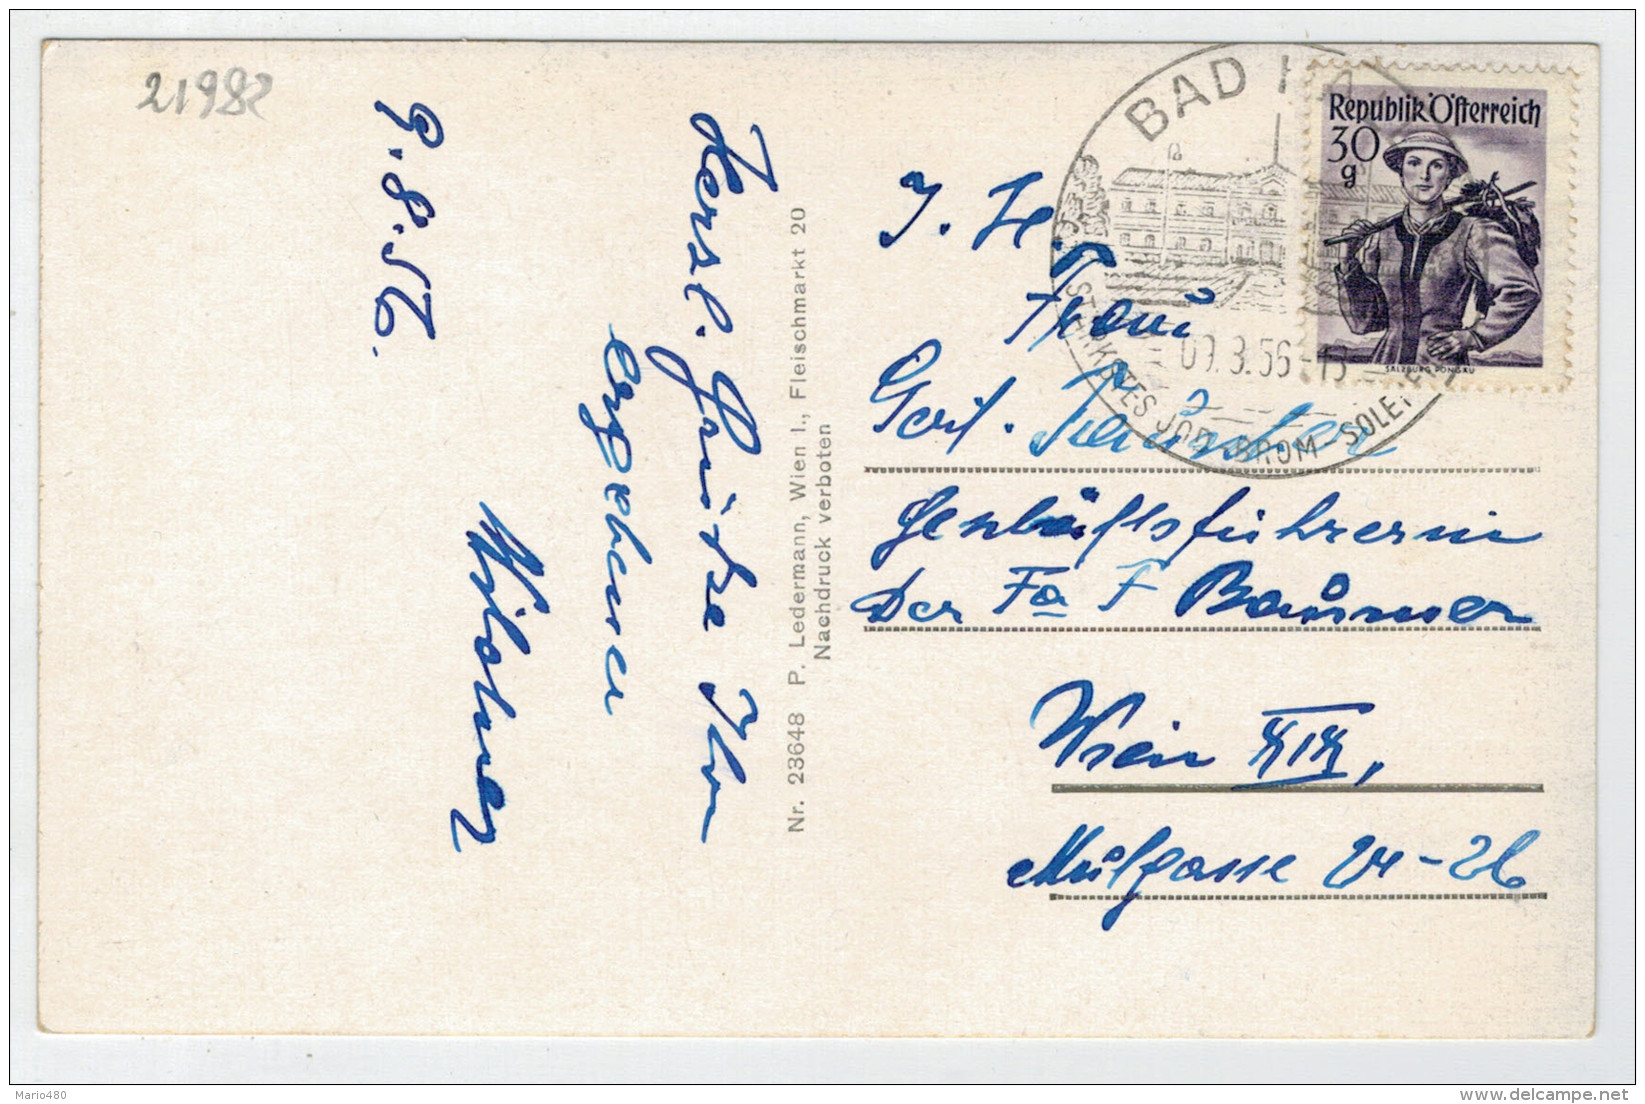 21982
9.8.56.
Herzl. Grüße Ihr
ergebener
Nr. 23648 P. Ledermann, Wien I., Fleischmarkt 20
Nachdruck verboten
BAD HA
STÄRKSTES JOD-BROM-SOLE
09.8.56-15
Republik Österreich
30
g
SALZBURG PONGAU
I. H.
Frau
Geschäftsführerin
Der Fa F Baumer
Wien XIX,
24-26
Mario480
delcampe.net